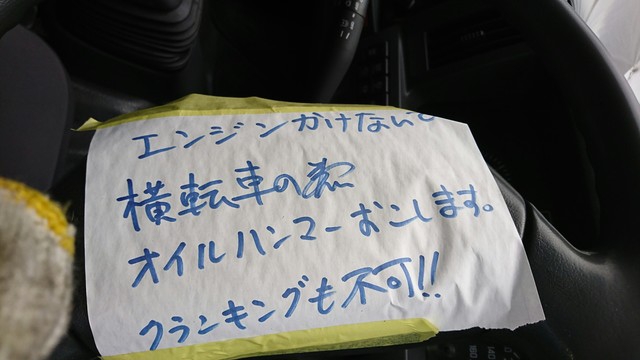 エンジンかけないで
横転車の為
オイルハンマーおこします。
クランキングも不可!!